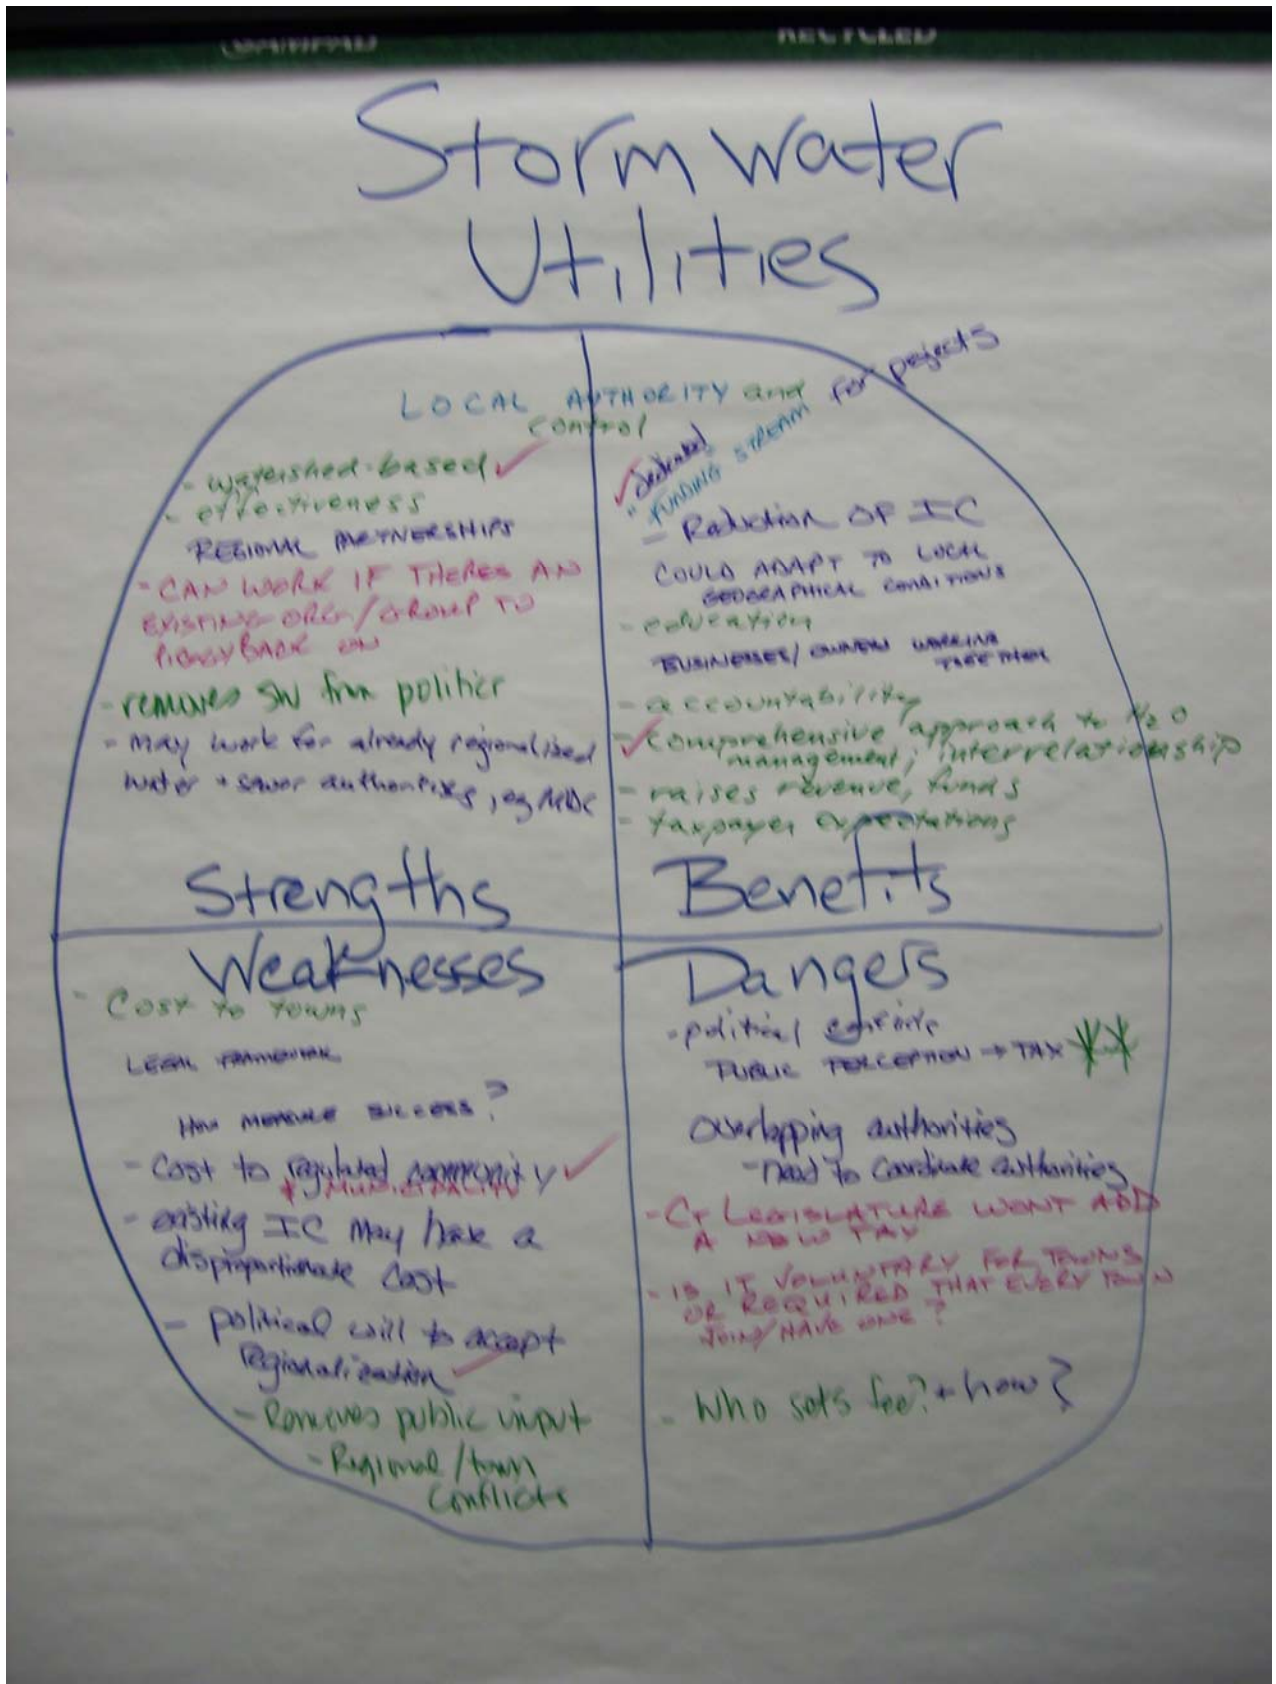 RECYCLED
Storm Water
Utilities
LOCAL AUTHORITY and
control
- watershed-based ✓
- effectiveness
REGIONAL PARTNERSHIPS
- CAN WORK IF THERES AN
EXISTING ORG/GROUP TO
PIGGYBACK ON
- removes SW from politics
- may work for already regionalized
water + sewer authorities, eg MDC
Strengths
✓ dedicated
"FUNDING STREAM for projects
- Reduction OF IC
COULD ADAPT TO LOCAL
GEOGRAPHICAL CONDITIONS
- education
BUSINESSES/OWNERS WORKING
TOGETHER
- accountability
✓ - comprehensive approach to H2O
management, interrelationship
- raises revenue, funds
- taxpayer expectations
Benefits
Weaknesses
- Cost to towns
LEGAL FRAMEWORK
HOW MEASURE SUCCESS?
- Cost to regulated community ✓
+ MUNICIPALITY
- existing IC may have a
disproportionate cost
- political will to accept
regionalization ✓
- Removes public input
- Regional/town
Conflicts
Dangers
- political
PUBLIC PERCEPTION → TAX
Overlapping authorities
- need to coordinate authorities
- CT LEGISLATURE WONT ADD
A NEW TAX
- IS IT VOLUNTARY FOR TOWNS
OR REQUIRED THAT EVERY TOWN
JOIN/HAVE ONE?
- Who sets fee? + how?